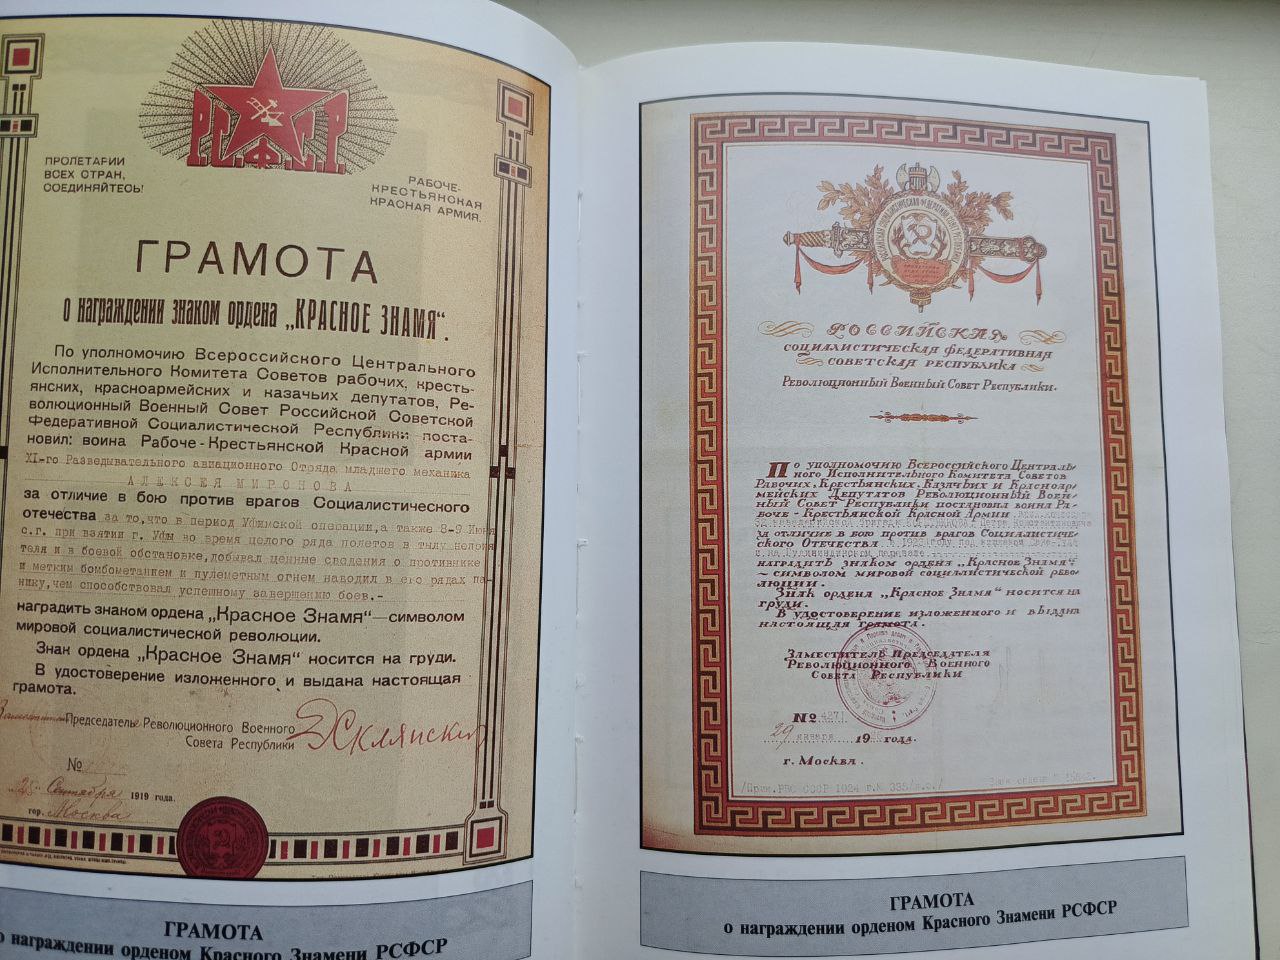 Р.С.Ф.С.Р.
ПРОЛЕТАРИИ
ВСЕХ СТРАН,
СОЕДИНЯЙТЕСЬ!
РАБОЧЕ-
КРЕСТЬЯНСКАЯ
КРАСНАЯ АРМИЯ.
ГРАМОТА
о награждении знаком ордена „КРАСНОЕ ЗНАМЯ“.
По уполномочию Всероссийского Центрального
Исполнительного Комитета Советов рабочих, кресть-
янских, красноармейских и казачьих депутатов, Ре-
волюционный Военный Совет Российской Советской
Федеративной Социалистической Республики поста-
новил: воина Рабоче-Крестьянской Красной армии
XI-го Разведывательного авиационного Отряда младшего механика
АЛЕКСЕЯ МИРОНОВА
за отличие в бою против врагов Социалистического
отечества за то, что в период Уфимской операции, а также 8-9 Июня
с.г. при взятии г. Уфы во время целого ряда полетов в тылу неприя
теля и в боевой обстановке, добывал ценные сведения о противнике
и метким бомбометанием и пулеметным огнем наводил в его рядах па-
нику, чем способствовал успешному завершению боев,-
наградить знаком ордена „Красное Знамя“—символом
мировой социалистической революции.
Знак ордена „Красное Знамя“ носится на груди.
В удостоверение изложенного и выдана настоящая
грамота.
Председатель Революционного Военного
Совета Республики
Склянский
№
25 Сентября 1919 года.
гор. Москва
ГРАМОТА
о награждении орденом Красного Знамени РСФСР
РОССИЙСКАЯ
СОЦИАЛИСТИЧЕСКАЯ ФЕДЕРАТИВНАЯ
СОВЕТСКАЯ РЕСПУБЛИКА
Революционный Военный Совет Республики.
По уполномочию Всероссийского Централь-
ного Исполнительного Комитета Советов
Рабочих, Крестьянских, Казачьих и Красноар-
мейских Депутатов Революционный Воен-
ный Совет Республики постановил воина Ра-
боче-Крестьянской Красной Армии
за отличие в бою против врагов Социалистиче-
ского Отечества
наградить знаком ордена „Красное Знамя“
— символом мировой социалистической рево-
люции.
Знак ордена „Красное Знамя“ носится на
груди.
В удостоверение изложенного и выдана
настоящая грамота.
Заместитель Председателя
Революционного Военного
Совета Республики
№ 4271
29 января 19 года.
г. Москва.
/Прик. РВС СССР 1924 г. № 335/л.с./
ГРАМОТА
о награждении орденом Красного Знамени РСФСР